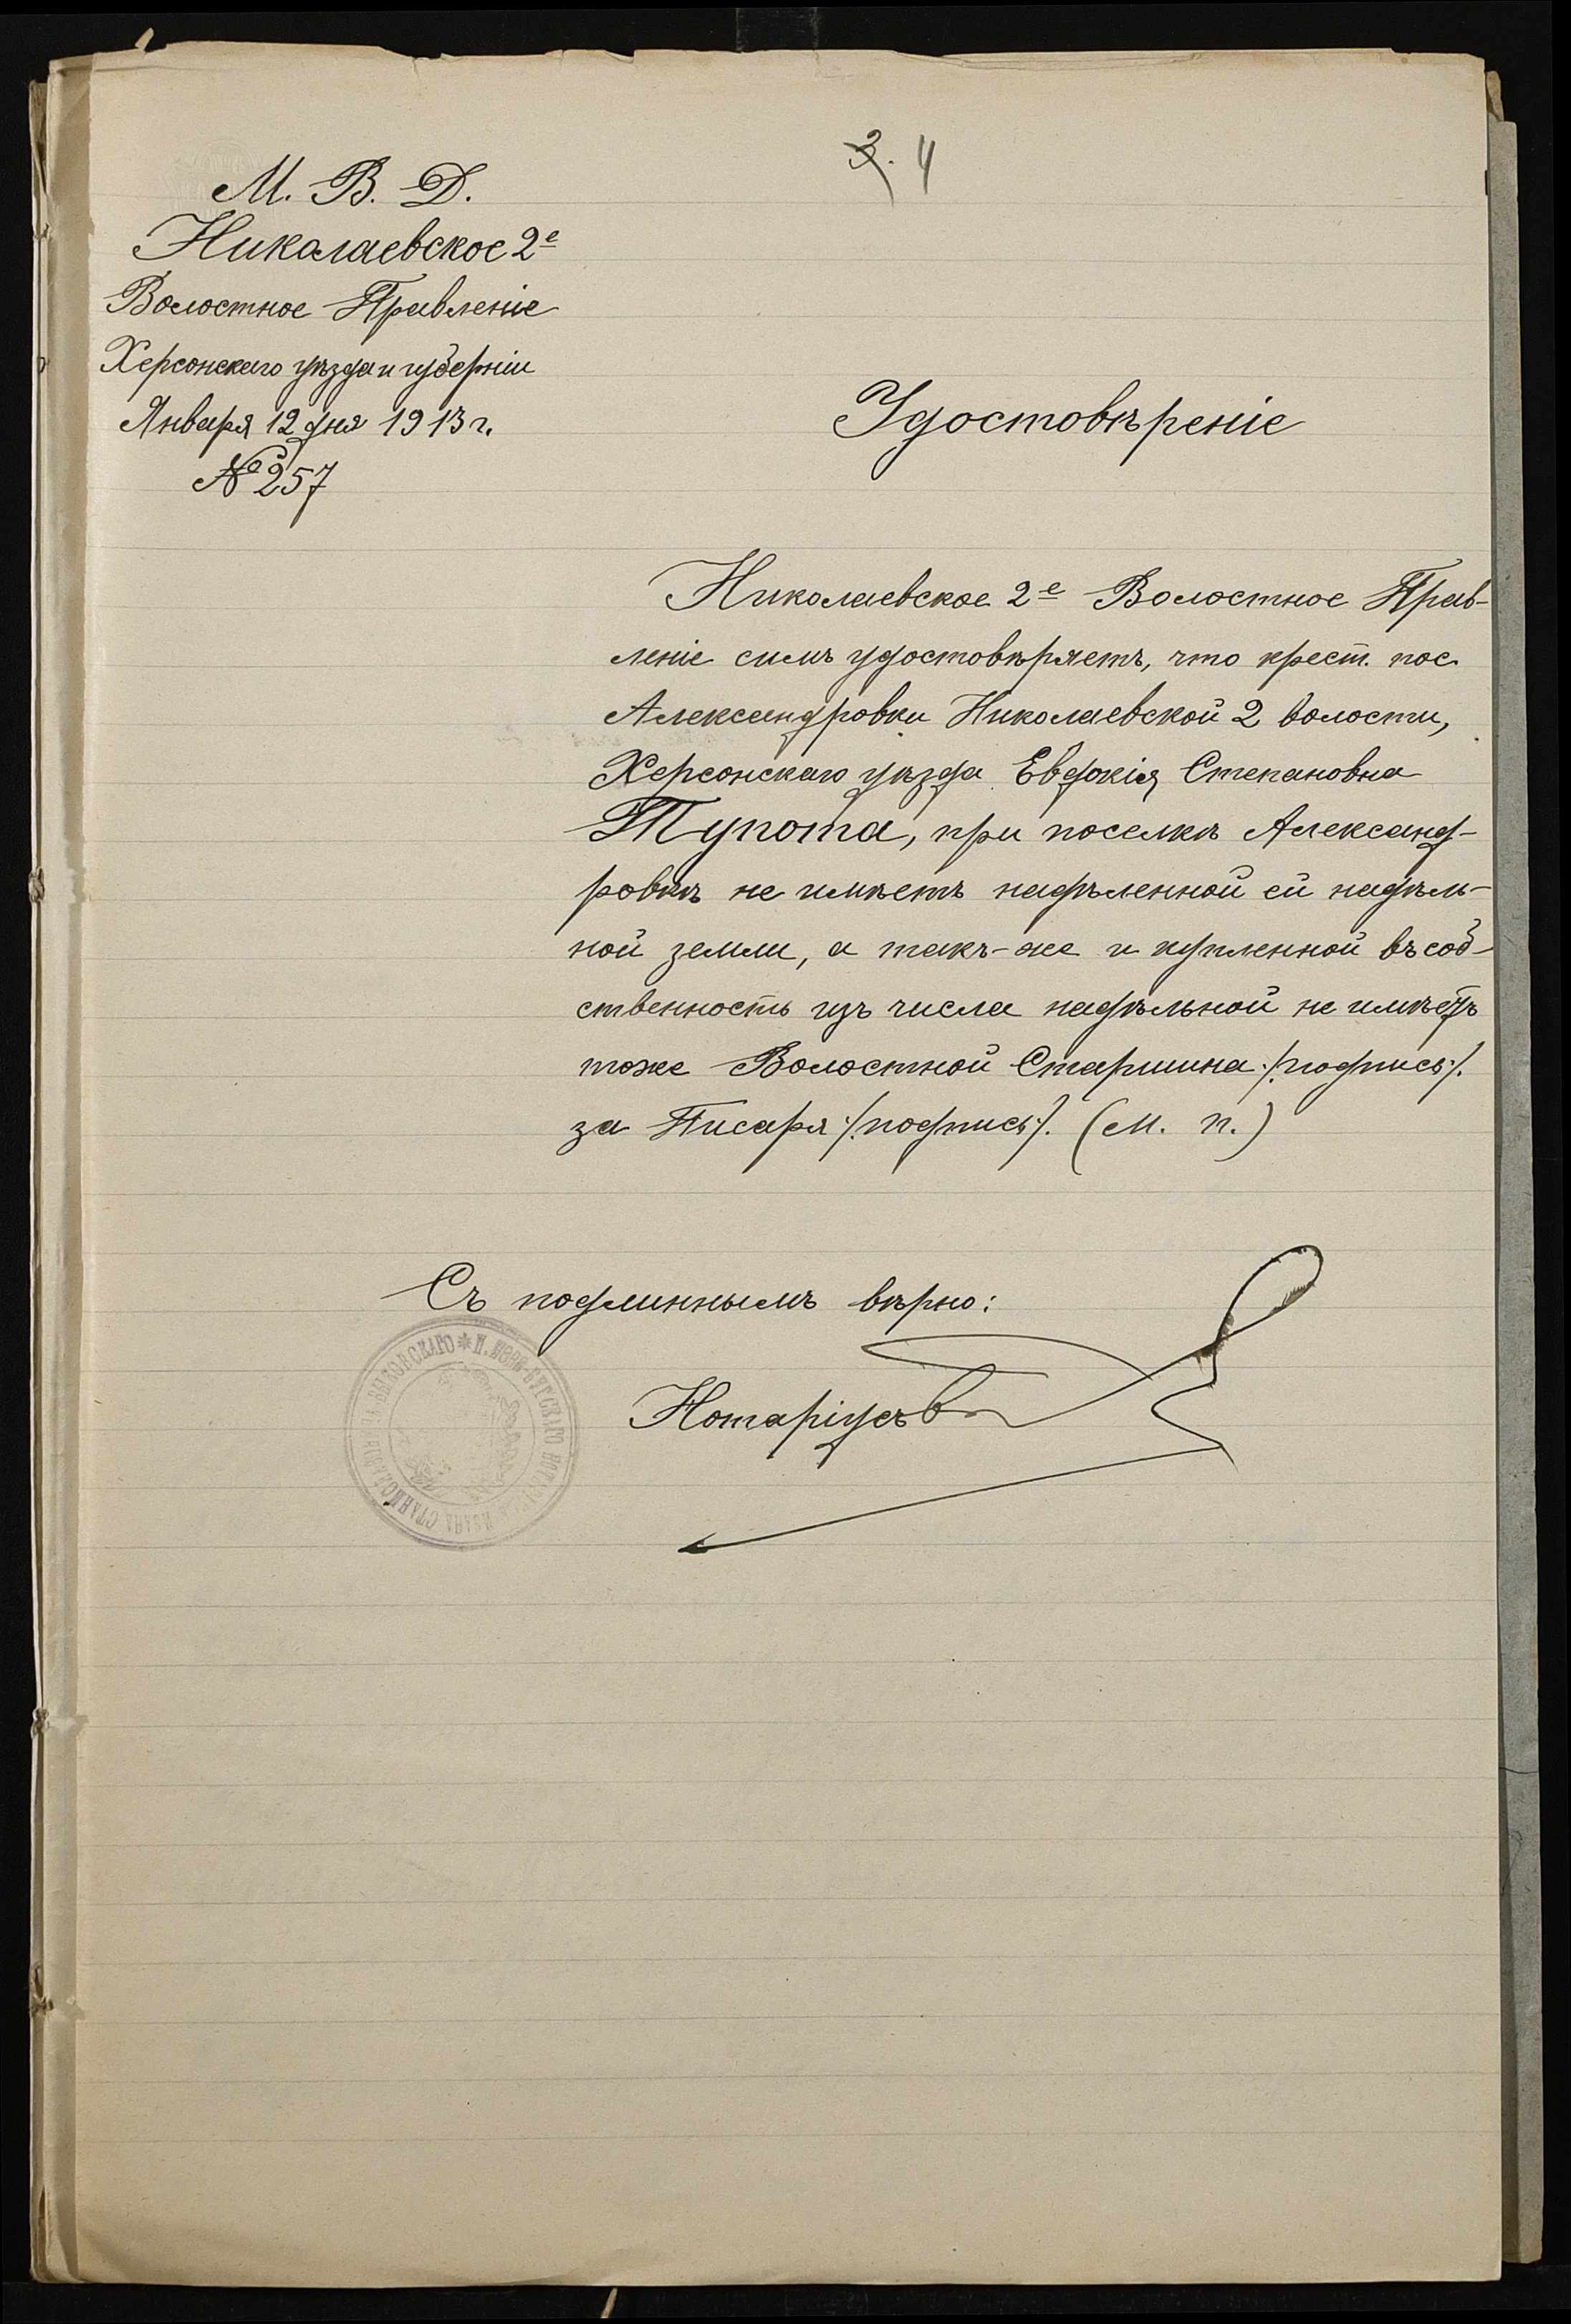 3. 4
М. В. Д.
Николаевское 2е
Волостное Правленіе
Херсонскаго уѣзда и губерніи
Января 12 дня 1913 г.
№ 257
Удостовѣреніе
Николаевское 2е Волостное Прав-
леніе симъ удостовѣряетъ, что крест. пос.
Александровки Николаевской 2 волости,
Херсонскаго уѣзда Евдокія Степановна
Тупота, при поселкѣ Александ-
ровкѣ не имѣетъ надѣленной ей надѣль-
ной земли, а такъ-же и купленной въ соб-
ственность изъ числа надѣльной не имѣетъ
тоже Волостной Старшина /:подпись:/.
за Писаря /:подпись:/. (М. п.)
Съ подлиннымъ вѣрно:
Нотаріусъ